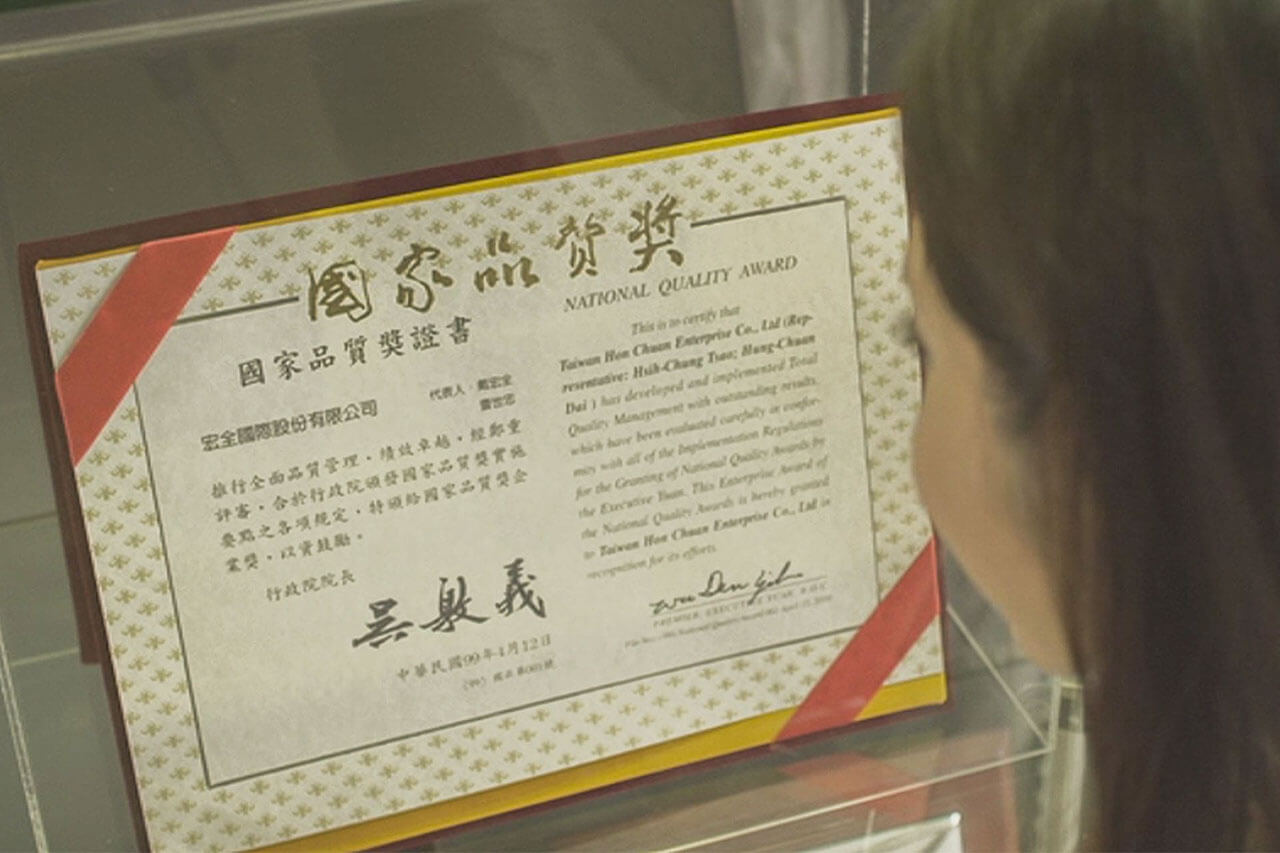 國家品質獎
國家品質獎證書
代表人：戴宏全
曹世忠
宏全國際股份有限公司
推行全面品質管理，績效卓越，經鄭重
評審，合於行政院頒發國家品質獎實施
要點之各項規定，特頒給國家品質獎企
業獎，以資鼓勵。
行政院院長
吳敦義
中華民國99年4月12日
NATIONAL QUALITY AWARD
This is to certify that
Taiwan Hon Chuan Enterprise Co., Ltd (Rep-
resentative: Hsih-Chung Tsao; Hung-Chuan
Dai ) has developed and implemented Total
Quality Management with outstanding results,
which have been evaluated carefully in confor-
mity with all of the Implementation Regulations
for the Granting of National Quality Awards by
the Executive Yuan. This Enterprise Award of
the National Quality Awards is hereby granted
to Taiwan Hon Chuan Enterprise Co., Ltd in
recognition for its efforts.
Wu Den-yih
PREMIER, EXECUTIVE YUAN, R.O.C.